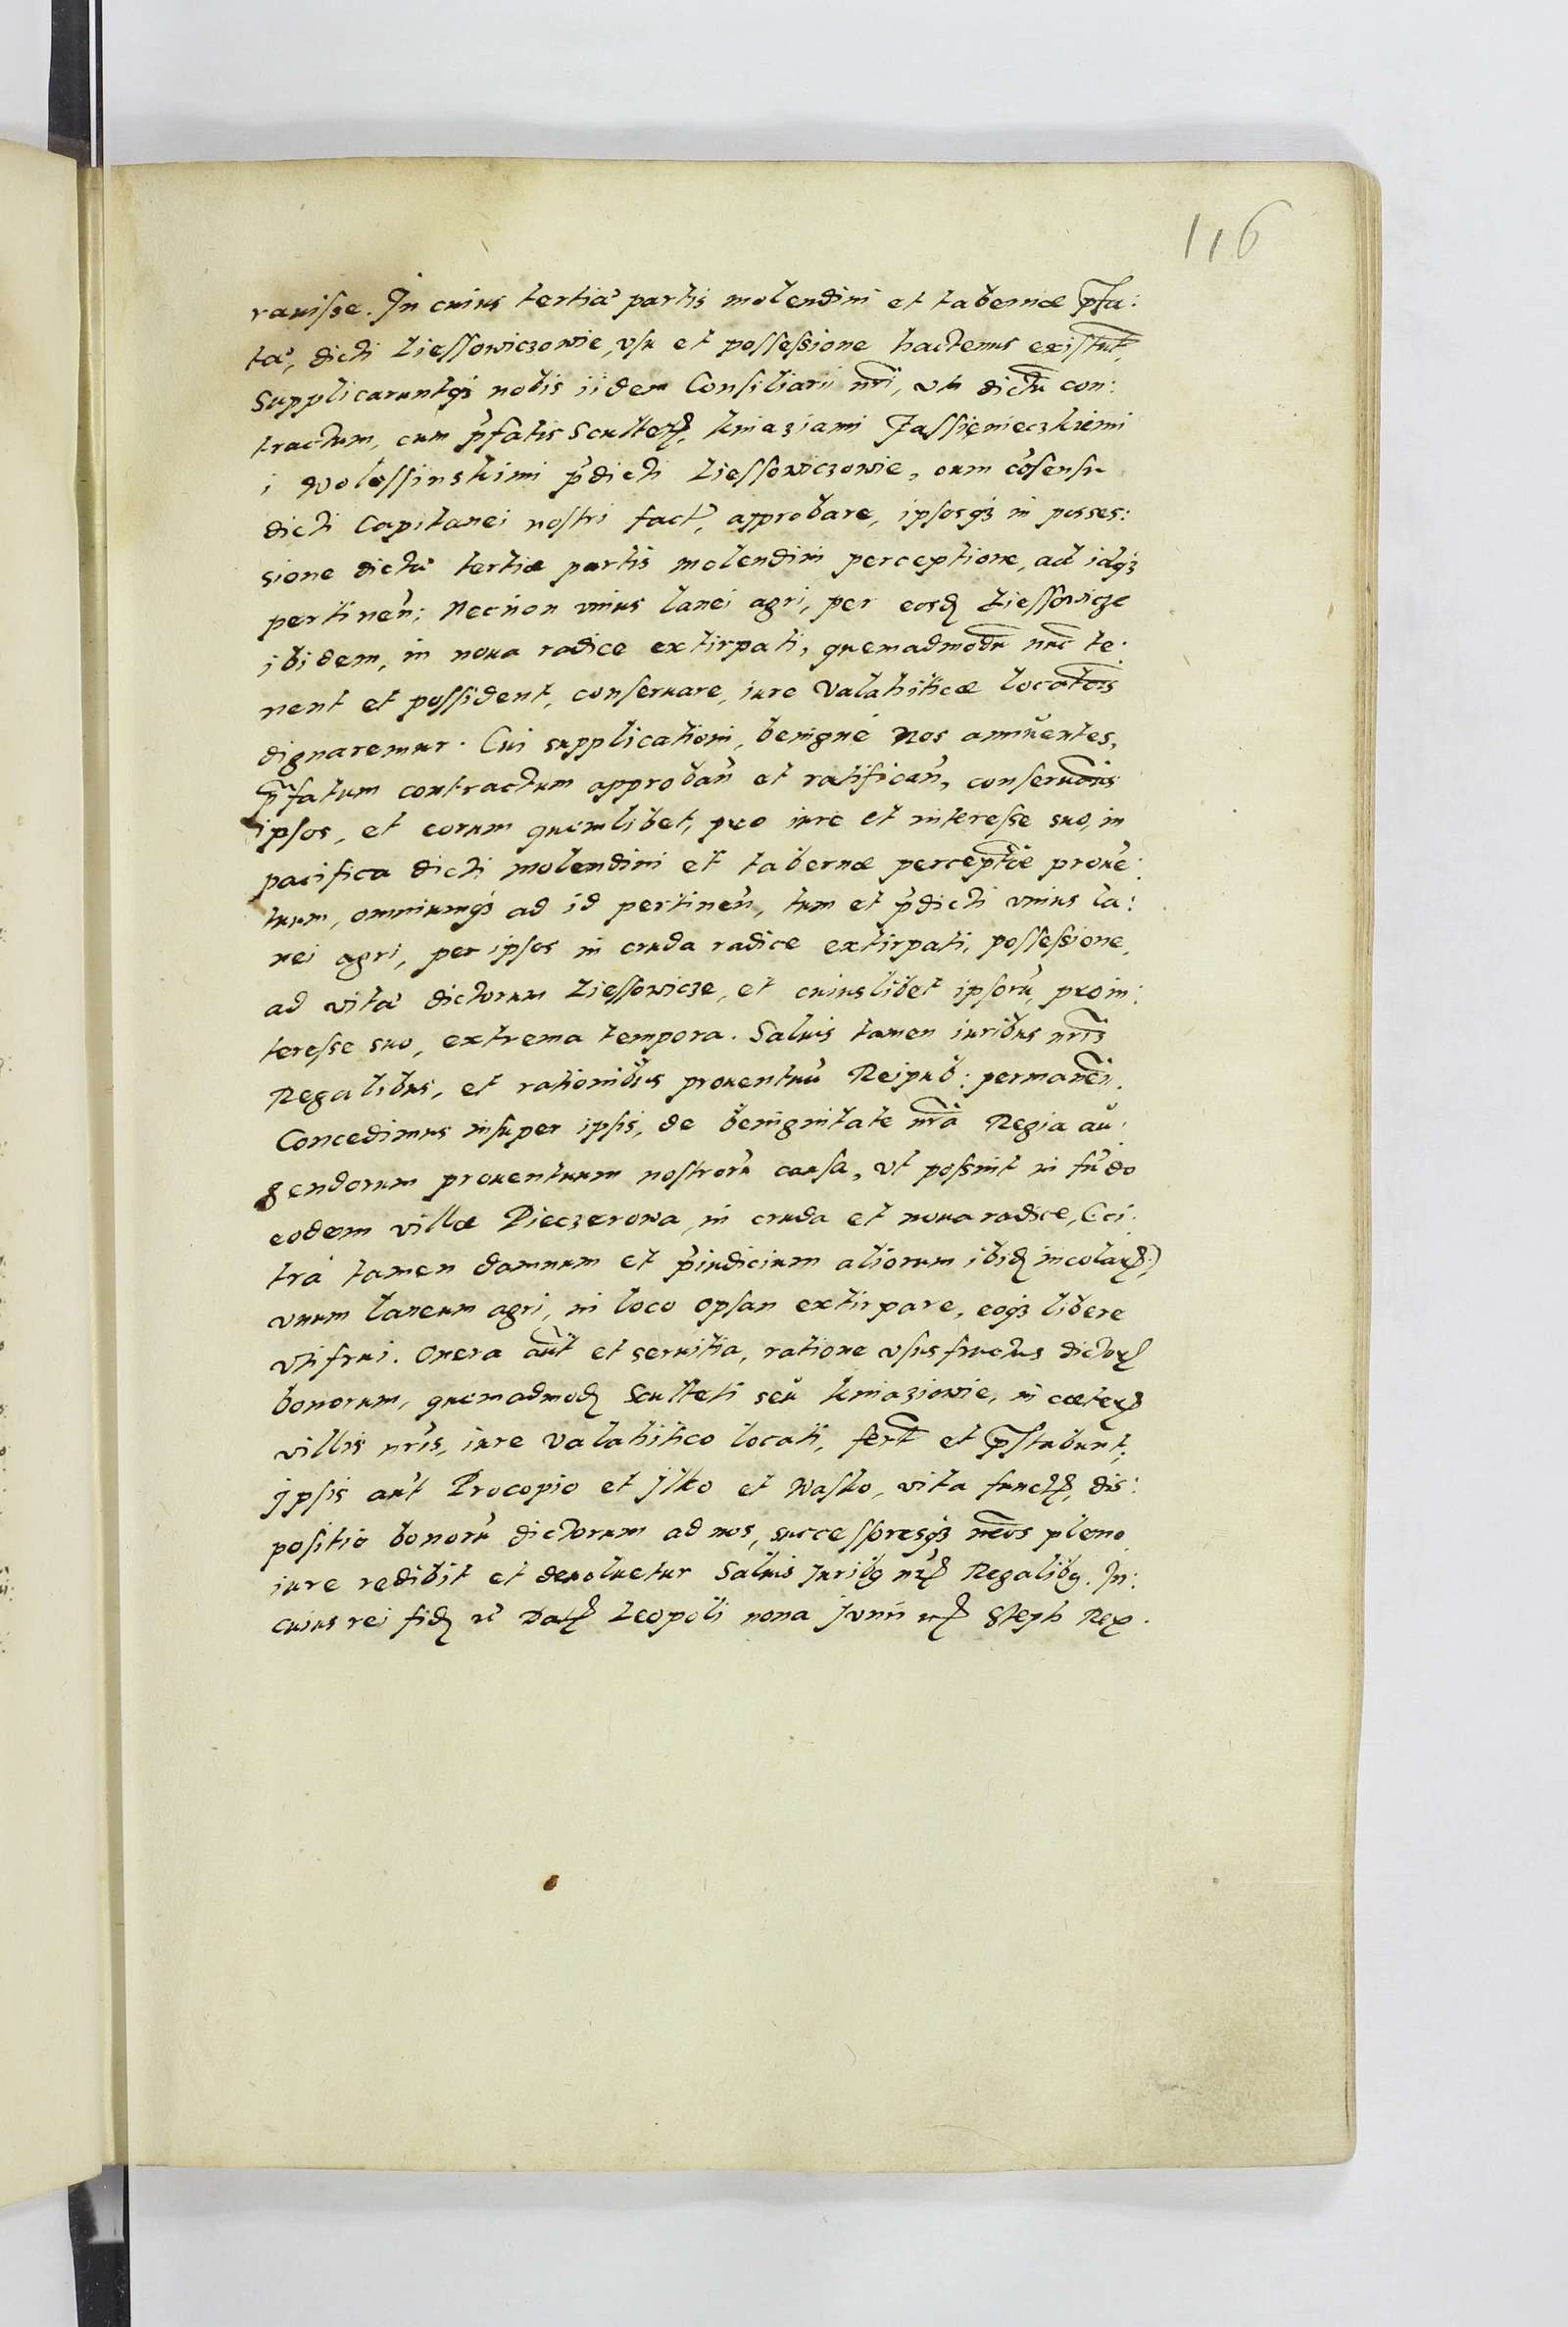 116
rauisse. In cuius tertiã partis molendini et tabernæ p̃fa:
tã, dicti Liessowiczowie, vsu et possessione hactenus existũt,
Supplicaruntqȝ nobis iidem Consiliarii nr̃i, vti dictũ con:
tractum, cum p̃fatis Scultetꝭ, kniaziami Jassięnieczkiemi
i Wolossinskimi p̃dicti Liessowiczowie, cum cõsensu
dicti Capitanei nostri factũ, approbare, ipsosqȝ in posses:
sione dictæ tertiæ partis molendini perceptione, ad idqȝ
pertineñ: Necnon vnius lanei agri, per eosdꝭ Liessowicze
ibidem, in noua radice extirpati, quemadmodũ nũc te:
nent et possident, conseruare, iure Valahiticæ locatõis
dignaremur. Cui supplicationi, benigné Nos annuentes,
p̃fatum contractum approbañ et ratificañ, conseruãmus
ipsos, et eorum quemlibet, pro iure et interesse suo, in
pacifica dicti molendini et tabernæ perceptõe prouẽ:
tuum, omniumqȝ ad id pertineñ, tum et p̃dicti vnius la:
nei agri, per ipsos in cruda radice extirpati, possessione,
ad vitæ dictorum Liessowicze, et cuiuslibet ipsorũ, pro in:
teresse suo, extrema tempora. Saluis tamen iuribus nr̃is
Regalibus, et rationibus prouentuũ Reipub: permaneñ.
Concedimus insuper ipsis, de benignitate nr̃a Regia au:
gendorum prouentuum nostrorũ causa, vt possint in fũdo
eodem villæ Pieczerowa, in cruda et noua radice, (ci:
trà tamen damnum et p̃iudicium aliorum ibidꝭ incolarꝝ)
vnum laneum agri, in loco opſan extirpare, eoqȝ libere
vti frui. Onera aũt et seruitia, ratione vsusfructus dictorꝝ
bonorum, quemadmodꝭ Sculteti seu kniaziowie, in cæterꝭ
villis nr̃is, iure valahitico locati, ferũt et p̃stabunt;
Ipsis aũt Procopio et Jlko et Wasko, vita functꝭ, dis:
positio bonorũ dictorum ad nos, successoresqȝ nr̃os pleno
iure redibit et deuoluetur Saluis Juribꝫ nr̃ꝭ Regalibꝫ. In:
cuius rei fidꝭ ꝛc̃ Datꝭ Leopoli nona Junii ꝛc̃ Steph Rex.